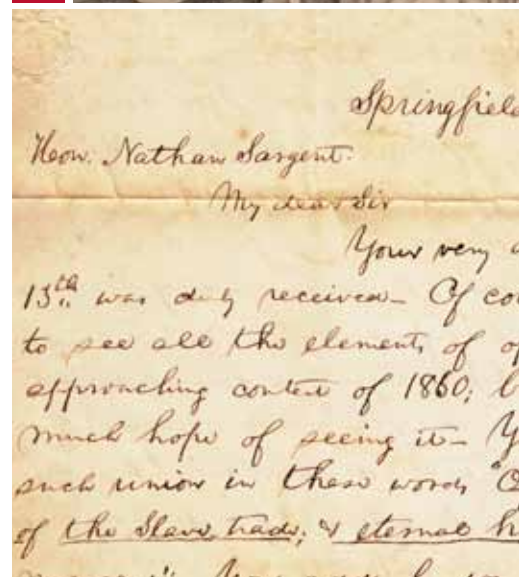 Springfield
Hon. Nathan Sargent.
My dear Sir
Your very
13th was duly received— Of
to see all the elements of
approaching contest of 1860;
much hope of seeing it—
such union in these words
of the Slave trade; & eternal